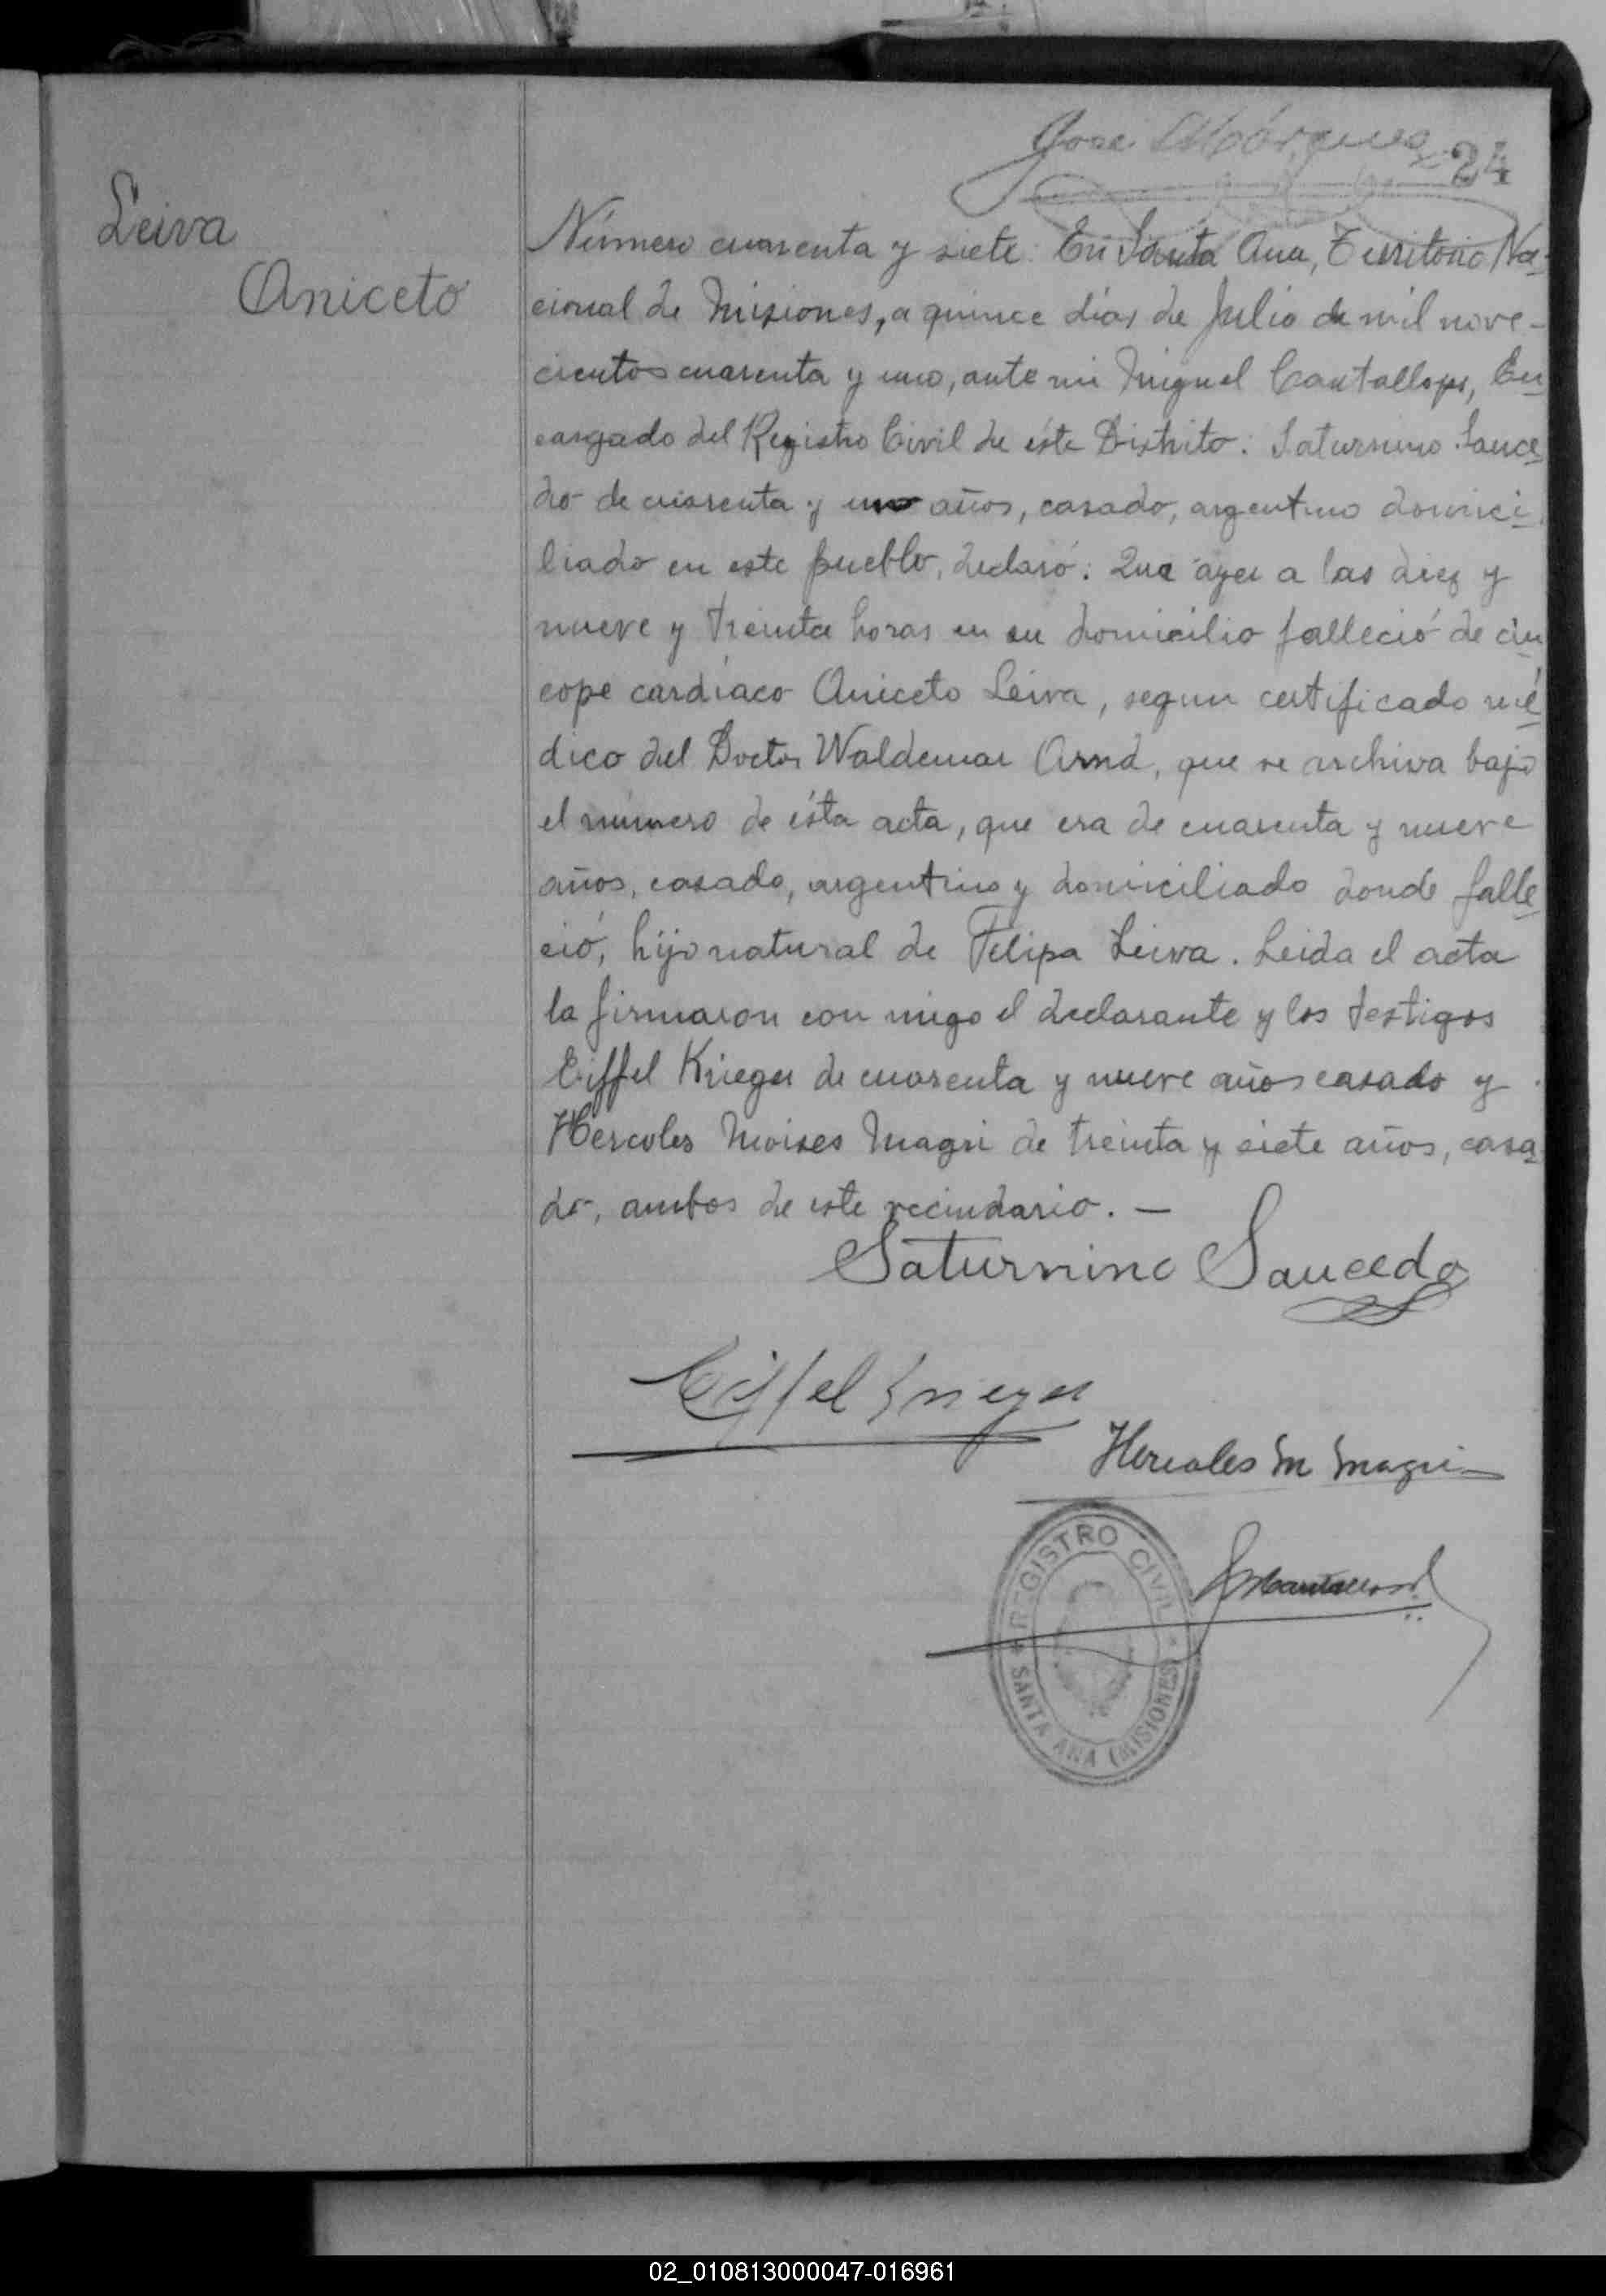 Jose Márquez 24
Leiva
Aniceto
Número cuarenta y siete: En Santa Ana, Territorio Na-
cional de Misiones, a quince días de Julio de mil nove-
cientos cuarenta y uno, ante mi Miguel Cantallops, En
cargado del Registro Civil de éste Distrito: Saturnino Sauce
do de cuarenta y uno años, casado, argentino domici
liado en este pueblo, declaró: Que ayer a las diez y
nueve y treinta horas en su domicilio falleció de cin
cope cardíaco Aniceto Leiva, segun certificado mé
dico del Doctor Waldemar Arnd, que se archiva bajo
el número de ésta acta, que era de cuarenta y nueve
años, casado, argentino y domiciliado donde falle
ció, hijo natural de Felipa Leiva. Leida el acta
la firmaron con migo el declarante y los testigos
Eiffel Krieger de cuarenta y nueve años casado y
Hercoles Moises Magri de treinta y siete años, casa
do, ambos de este vecindario. —
Saturnino Saucedo
Eiffel Krieger
Hercoles M Magri
MCantallops
REGISTRO CIVIL
SANTA ANA (MISIONES)
02_010813000047-016961